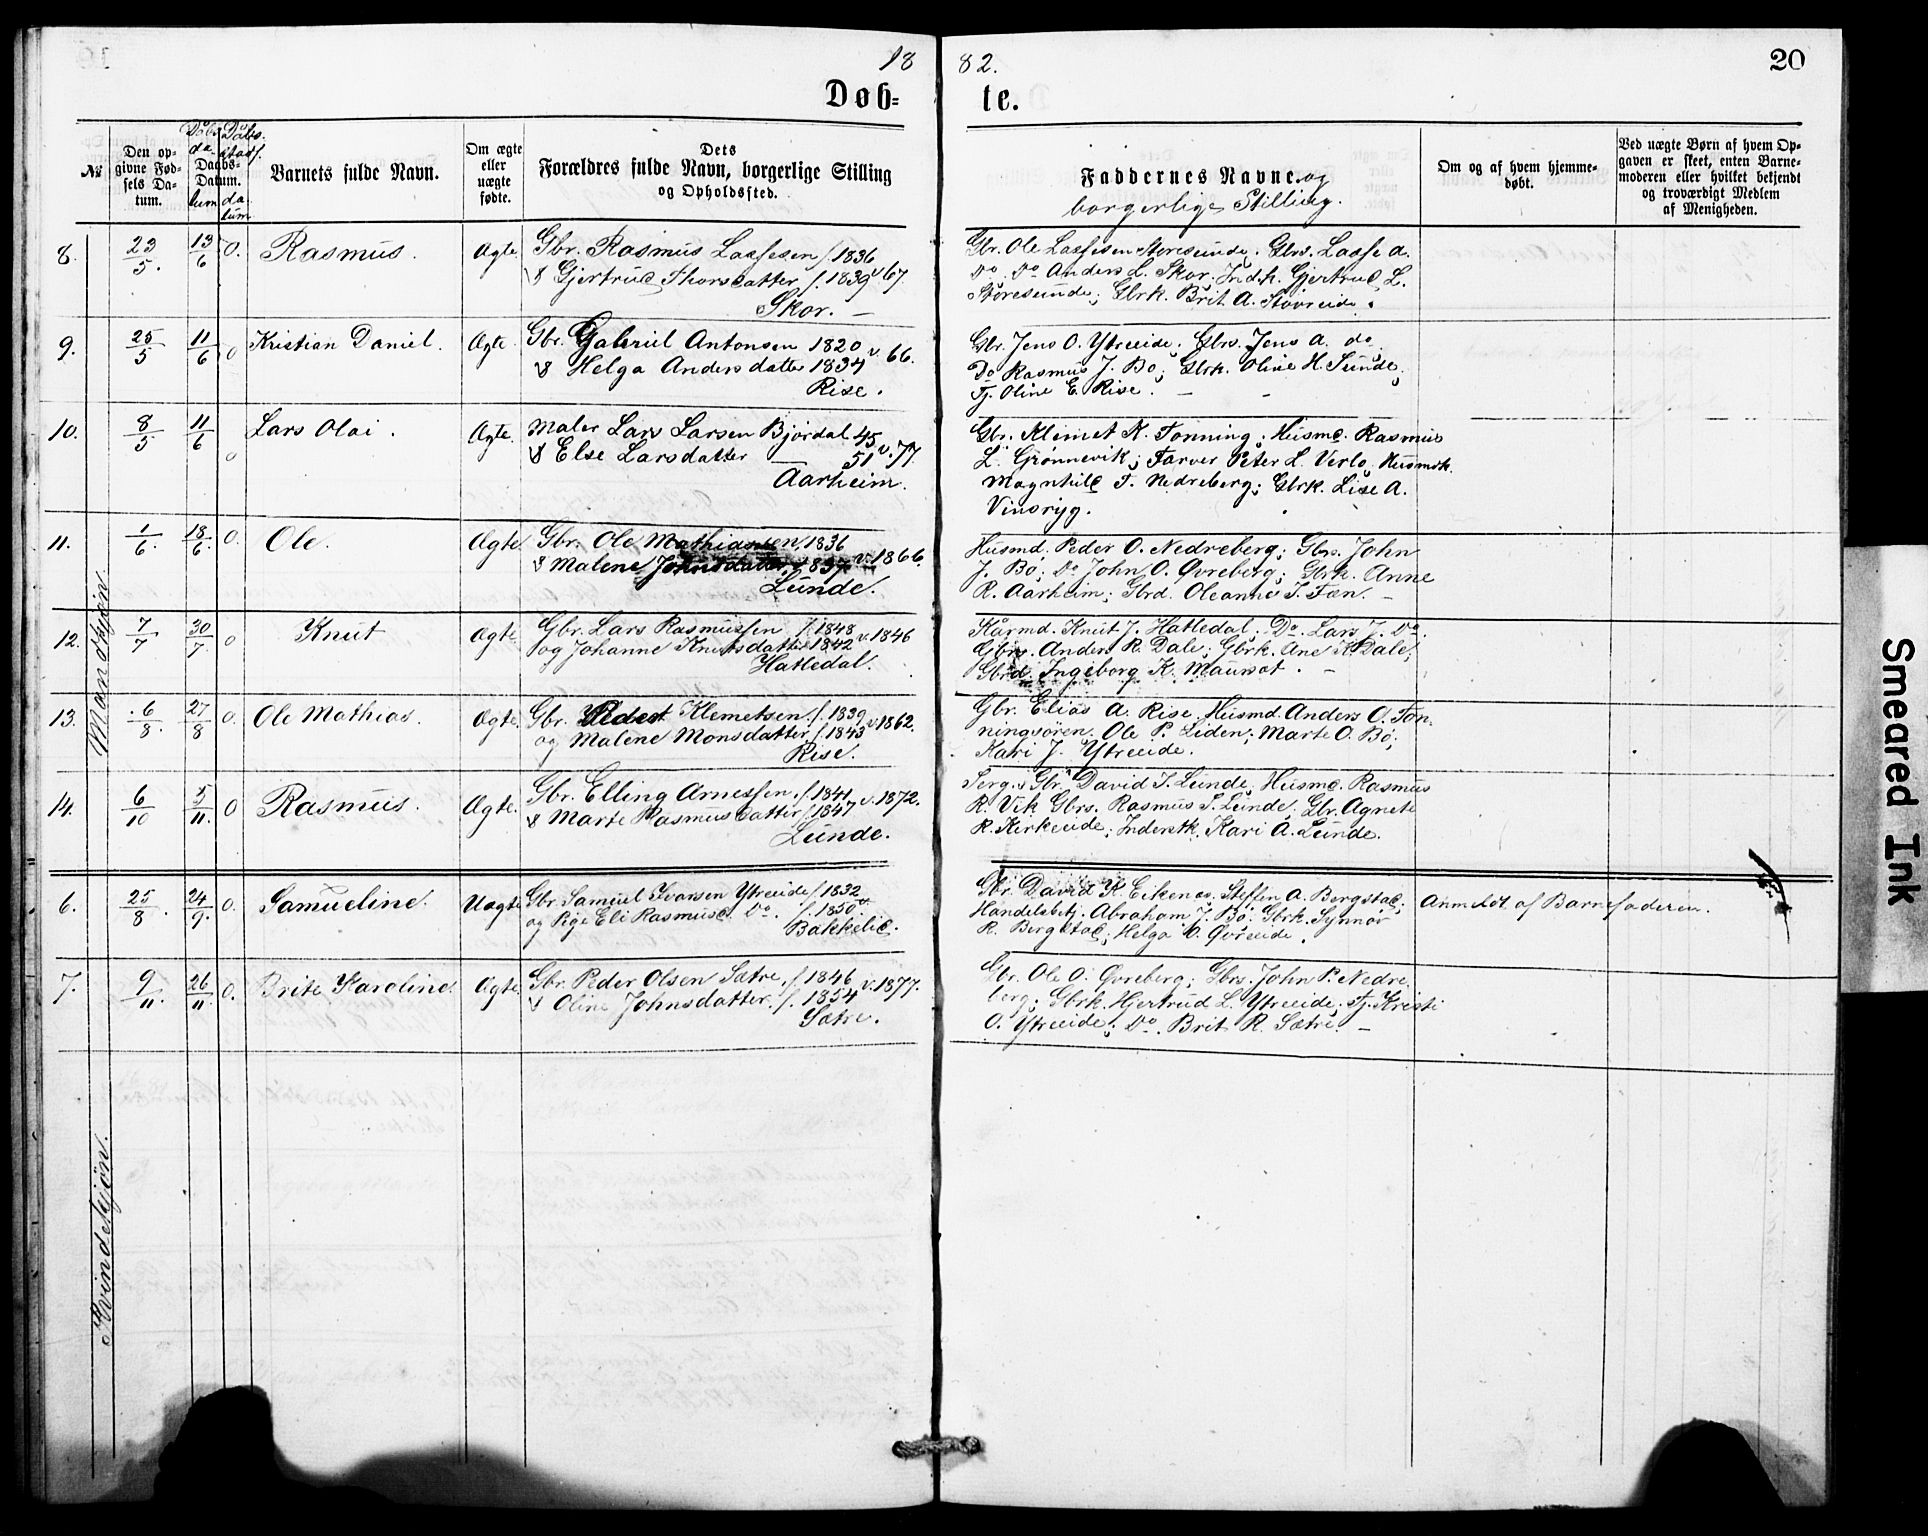 18 82.
20
Døb= te.
№
Den op-
givne Fød-
sels Da-
tum.
Døbs
da-
Daabs-
Datum.
tum
Døbs.
stad.
da-
tum
Barnets fulde Navn.
Om ægte
eller
uægte
fødte.
Dets
Forældres fulde Navn, borgerlige Stilling
og Opholdssted.
Faddernes Navne og
borgerlige Stilling.
Om og af hvem hjemme-
døbt.
Ved uægte Børn af hvem Op-
gaven er skeet, enten Barne-
moderen eller hvilket bekjendt
og troværdigt Medlem
af Menigheden.
Mandkjøn.
8. 23/5. 13/6 0. Rasmus. Ægte Gbr. Rasmus Lassesen f. 1836
& Gjertrud Thorsdatter f. 1839 v 67.
Skor. —
Gbr. Ole Lassesen Støresunde; Gbrs. Lasse A.
Do. Do Anders L. Skor; Indk. Gjertrud L.
Støresunde; Gbrk. Brit A. Stavreide.
9. 25/5 11/6 0 Kristian Daniel. Ægte. Gbr. Gabriel Antonsen 1820
& Helga Andersdatter 1834 v. 66.
Rise.
Gbr. Jens O. Ytreeide; Gbrs. Jens A. do
Do Rasmus J. Bø; Gbrk. Oline H. Sunde;
Tj. Oline E. Rise. —
10. 8/5 11/6 0 Lars Olai. Ægte. Maler Lars Larsen Bjørdal 45
& Else Larsdatter 51 v. 77.
Aarheim.
Gbr. Klemet K. Tonning; Husmd. Rasmus
L. Grønnevik; Farver Peter L. Verlo; Husmk.
Magnhild T. Nedreberg; Gbrk. Lise A.
Vinsryg.
11. 1/6. 18/6. 0. Ole. Ægte. Gbr. Ole Mathiassen 1836
& Malene Johnsdatter 1837 v. 1866.
Lunde.
Husmd. Peder O. Nedreberg; Gbrs. John
J. Bø; Do John O. Øvreberg; Gbrk. Anne
R. Aarheim; Gbrd. Oleanne J. Fæn. —
12. 7/7 30/7 0 Knut Ægte. Gbr. Lars Rasmussen f. 1848
og Johanne Knutsdatter 1842 v. 1846
Hatledal.
Kårmd. Knut J. Hatledal; Do. Lars J. Do.
Gbrs. Anders R. Dale; Gbrk. Ane K. Dale;
Gbrd. Ingeborg K. Maurset. —
13. 6/8. 27/8 0. Ole Mathias. Ægte. Gbr. Peder Klemetsen f. 1839
og Malene Monsdatter f. 1843 v 1862.
Rise.
Gbr. Elias A. Rise, Husmd. Anders O. Ton-
ningsøren. Ole P. Liden; Marte O. Bø;
Kari J. Ytreeide.
14. 6/10 5/11. 0 Rasmus. Ægte. Gbr. Elling Arnessen f. 1841
& Marte Rasmusdatter f. 1847 v. 1872.
Lunde.
Serg. & Gbr. David J. Lunde; Husmd. Rasmus
R. Vik Gbrs. Rasmus S. Lunde; Gbr. Agnete
R. Kirkeeide; Inderstk. Kari A. Lunde.
Kvindekjøn.
6. 25/8. 24/9. 0. Samueline. Uægte Gbr. Samuel Ivarsen Ytreeide f. 1832
og Pige Eli Rasmusd. Do. f. 1850
Bakkelid.
Gbr. David K. Eikenes, Steffen A. Bergstad;
Handelsbetj. Abraham J. Bø. Gbrk. Synnøv
R. Bergstad; Helga O. Øvreeide.
Anmeldt af Barnefaderen.
7. 9/11. 26/11. 0. Brite Karoline. Ægte. Gbr. Peder Olsen Sætre, f. 1846
& Oline Johnsdatter. f. 1854 v. 1877.
Sætre.
Gbr. Ole O. Øvreberg; Gbrs. John P. Nedre
berg; Gbrk. Hjertrud L. Ytreeide; Tj. Kristi
O. Ytreeide; Do. Brit R. Sætre. —
Smeared Ink